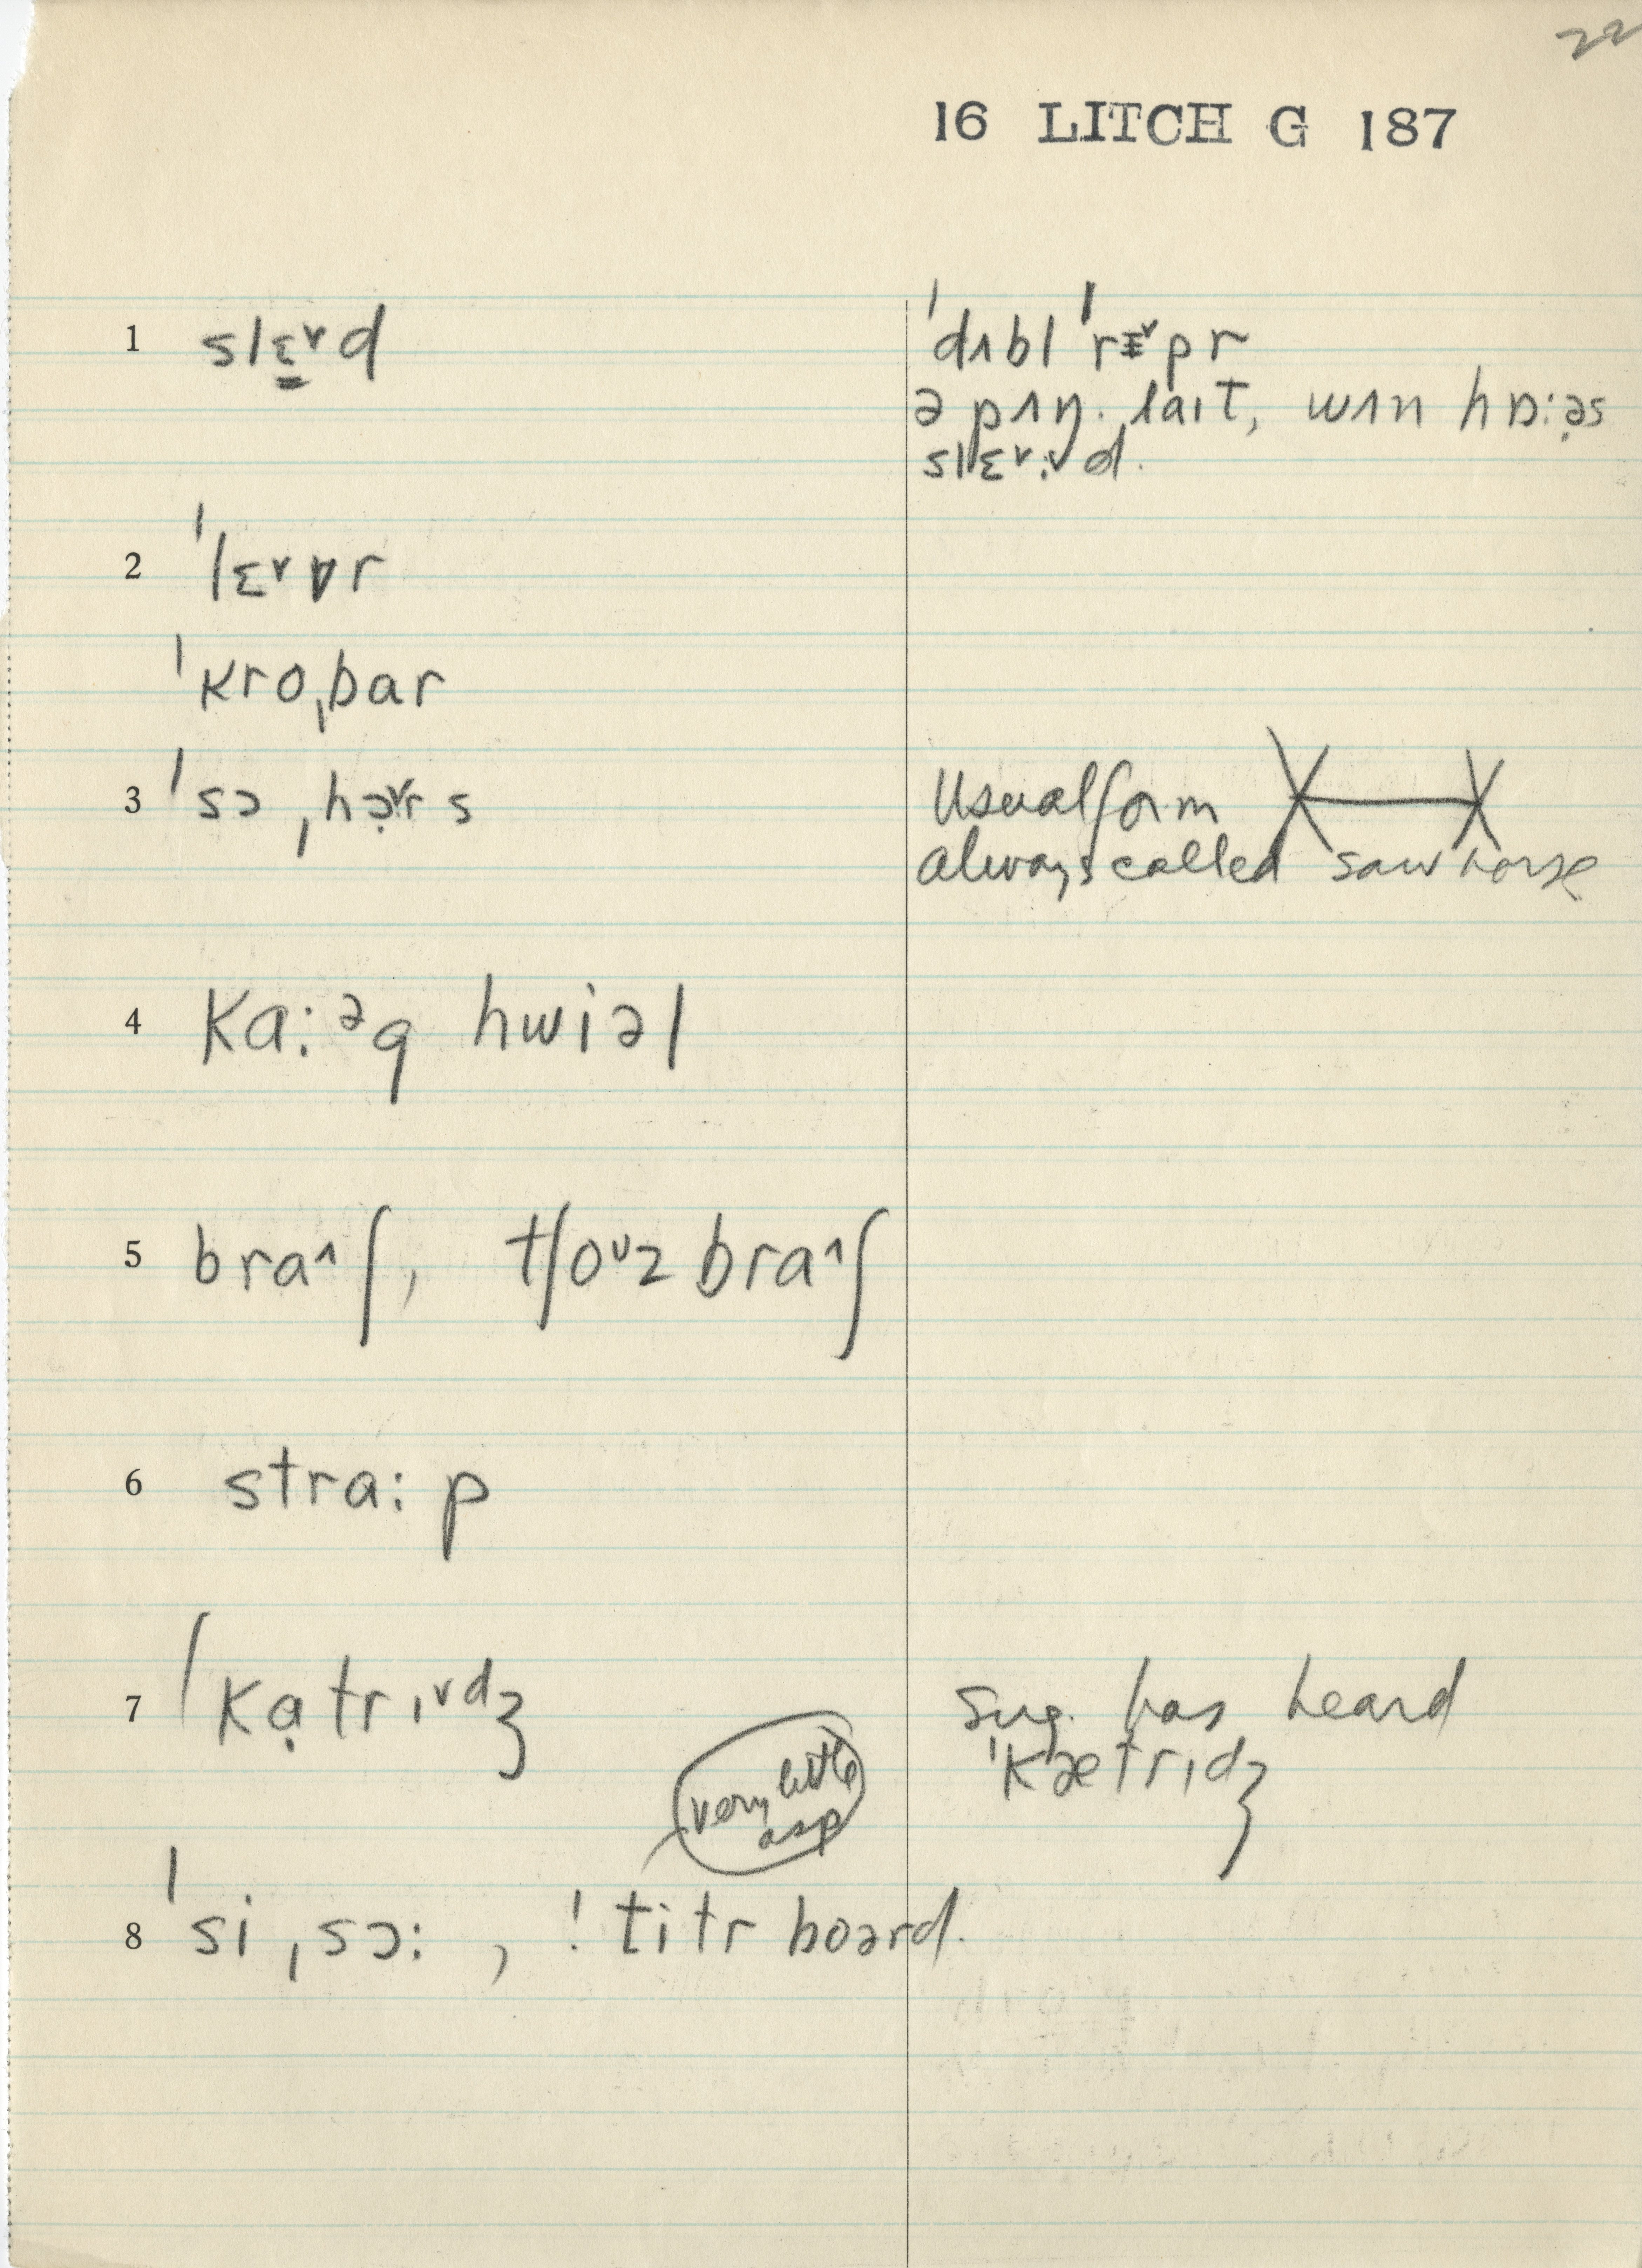 22
16 LITCH G 187
1 slɛ̳˅d
ˈdʌbl ˈrɛ˅pr
ə pʌŋ. laɪt, wʌn hɒ:ə̣s
slɛ˅:˅d.
2 ˈlɛ˅ɐr
ˈkroˌbar
3 ˈsɔˌhɔ̣˅rs
Usual form
always called sawhorse
4 ka:ᵊg hwiəl
5 braˆʃ, tʃoᶷz braˆʃ
6 stra:p
7 ˈkạtrɪ˅dʒ
Sug. has heard
ˈkætrɪdʒ
very little
asp
8 ˈsiˌsɔ:, ˈtitr boərd.